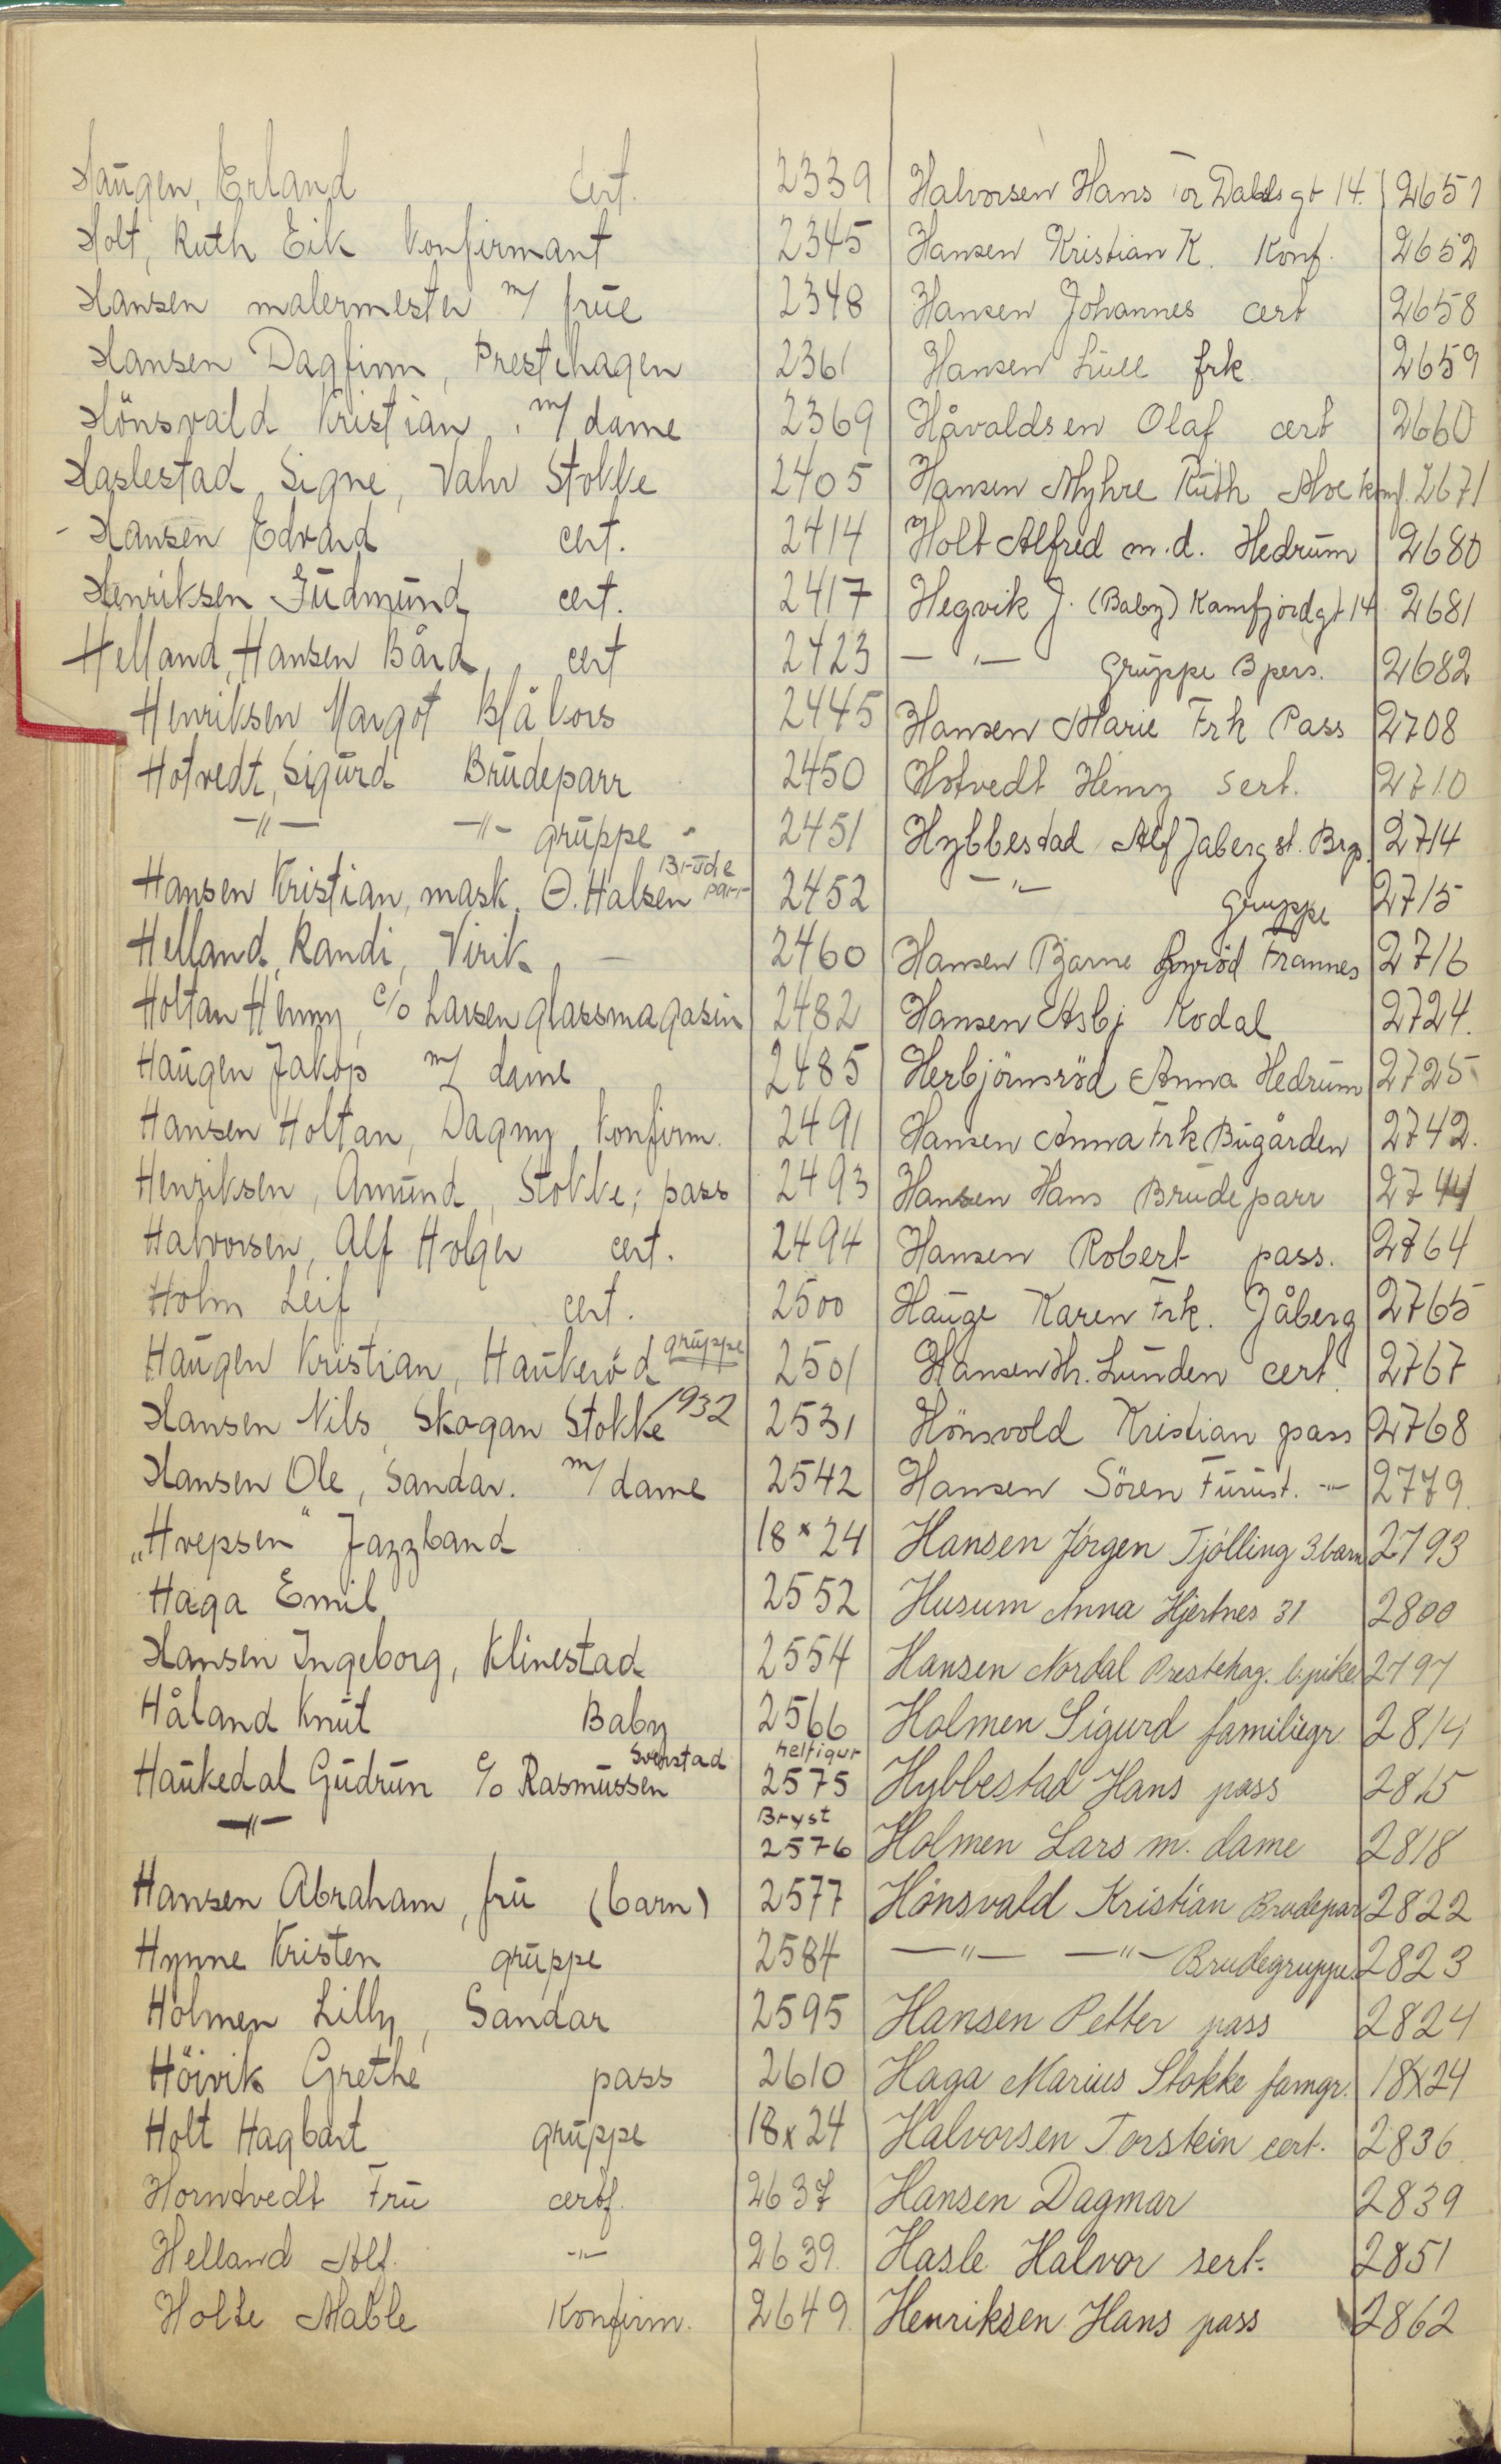 Haugen, Erland cert. 2339
Holt, Ruth Eik Konfirmant 2345
Hansen malermester m/ frue 2348
Hansen Dagfinn, Prestehagen 2361
Hönsvald Kristian, m/ dame 2369
Haslestad, Signe, Valur Stokke 2405
- Hansen Edvard cert. 2414
Henriksen Gudmund cert. 2417
Helland, Hansen Bård, cert 2423
Henriksen Margot Blåkors 2445
Hotvedt, Sigurd Brudeparr 2450
-"- -"- gruppe - 2451
Hansen Kristian, mask. Ø. Halsen Brude parr 2452
Helland, Randi, Virik 2460
Holtan Henny, c/o Larsen glassmagasin 2482
Haugen Jakob m/ dame 2485
Hansen Holtan, Dagny, Konfirm. 2491
Henriksen, Amund, Stokke; pass 2493
Halvorsen, Alf Holger cert. 2494
Holm Leif cert. 2500
Haugen Kristian, Haukeröd gruppe 2501
Hansen Nils, Skogan Stokke 1932 2531
Hansen Ole, Sandar. m/ dame 2542
„Hvepsen" Jazzband 18 x 24
Haga Emil 2552
Hansen Ingeborg, Klinestad 2554
Håland Knut Baby 2566
Haukedal Gudrun c/o Rasmussen Svenstad helfigur 2575
-"- Bryst 2576
Hansen Abraham, fru (barn) 2577
Hynne Kristen gruppe 2584
Holmen Lilly, Sandar 2595
Höivik Grethe pass 2610
Holt Hagbart gruppe 18 x 24
Horntvedt Fru certf. 2637
Helland Alf. -"- 2639.
Holte Mable Konfirm. 2649.
Halvorsen Hans Tor Dahls gt 14. 2651
Hansen Kristian K. Konf. 2652
Hansen Johannes cert 2658
Hansen Lull frk 2659
Håvaldsen Olaf cert 2660
Hansen Myhre Ruth Moe konf. 2671
Holt Alfred m.d. Hedrum 2680
Hegvik J. (Baby) Kamfjordgt 14 2681
- " - gruppe 3 pers. 2682
Hansen Marie Frk Pass 2708
Hotvedt Henry Sert. 2710
Hybbestad Alf Jaberg st. Brp. 2714
- " - gruppe 2715
Hansen Bjarne Framnes 2716
Hansen Asbj Kodal 2724.
Herbjörnsröd Anna Hedrum 2725
Hansen Anna Frk Bugården 2742.
Hansen Hans Brudeparr 2744
Hansen Robert pass. 2764
Hauge Karen Frk. Jåberg 2765
Hansen Hr. Lunden cert. 2767
Hönsvold Kristian pass 2768
Hansen Sören Furust. -"- 2779.
Hansen Jörgen Tjölling 3 barn 2793
Husum Anna Hjertnes 31 2800
Hansen Nordal Prestehag. l. pike. 2797
Holmen Sigurd familiegr. 2814
Hybbestad Hans pass 2815
Holmen Lars m. dame 2818
Hönsvald Kristian Brudepar 2822
-"- -"- Brudegruppe 2823
Hansen Petter pass 2824
Haga Marius Stokke famgr. 18X24
Halvorsen Torstein cert. 2836
Hansen Dagmar 2839
Hasle Halvor sert. 2851
Henriksen Hans pass 2862